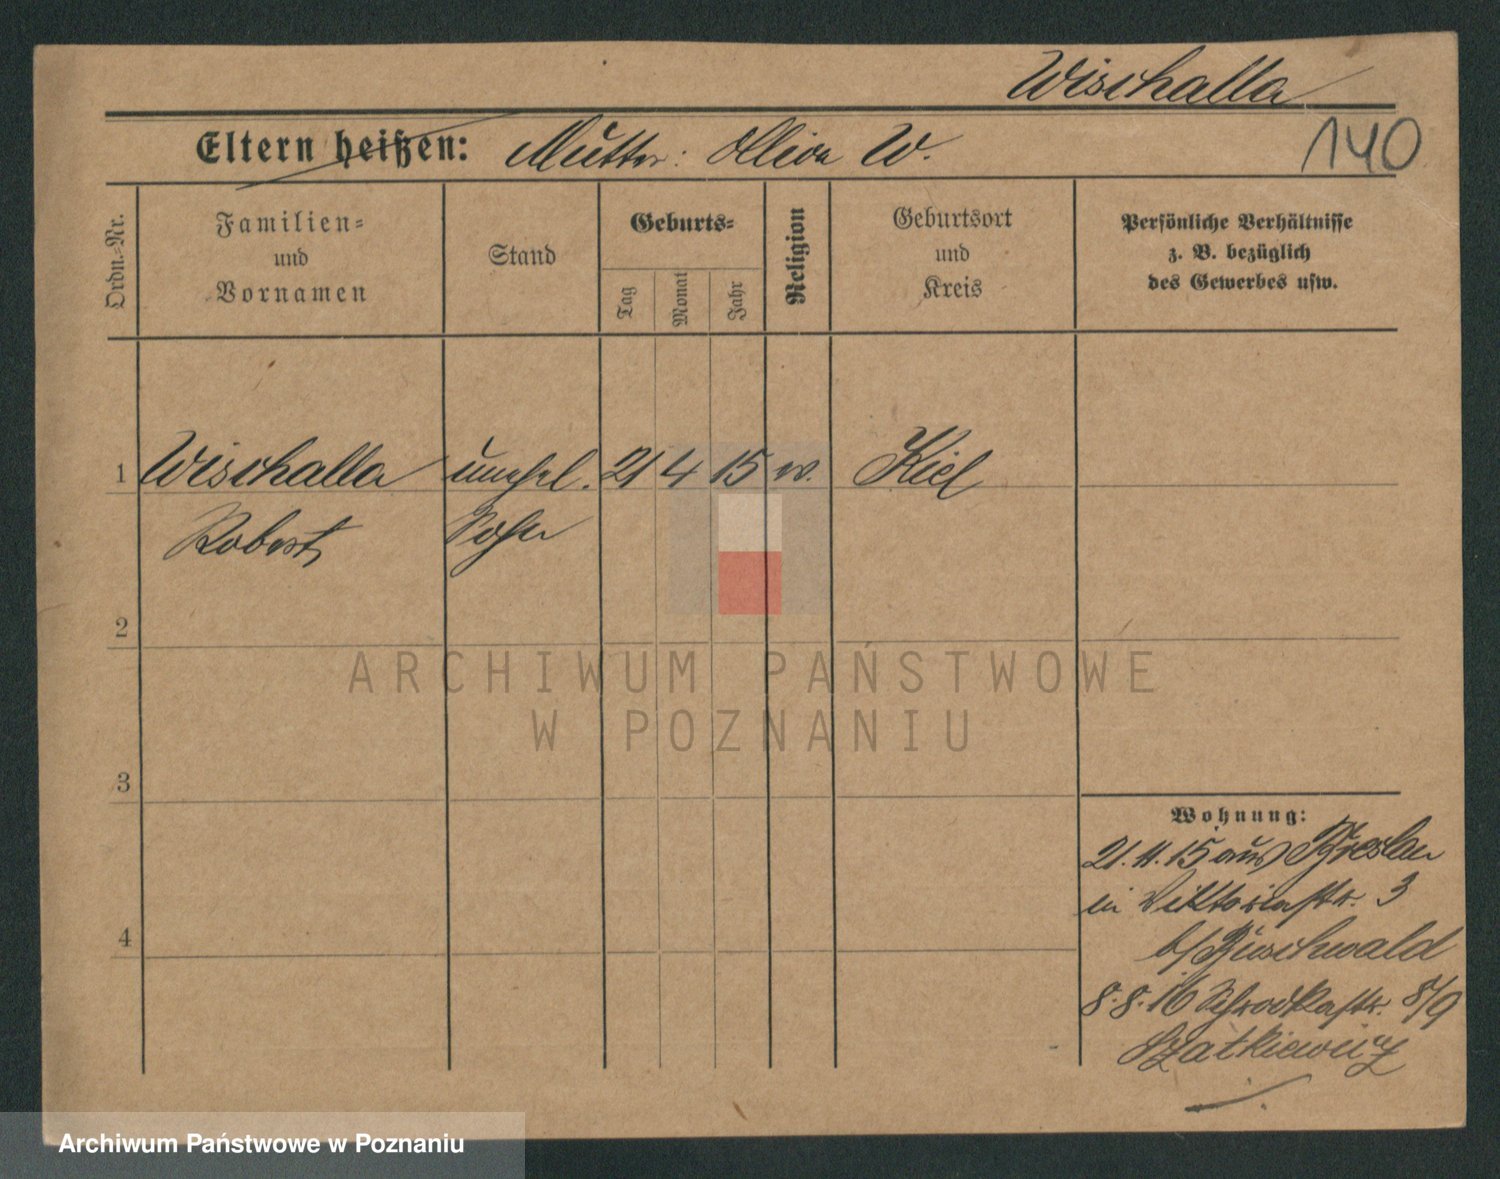 Wischalla
140
Eltern heißen: Mutter: Oliva W.
Ordn.=Nr.
Familien=
und
Vornamen
Stand
Geburts=
Tag
Monat
Jahr
Religion
Geburtsort
und
Kreis
Persönliche Verhältnisse
z. B. bezüglich
des Gewerbes usw.
1 Wischalla unehel. 21 4 15 Kiel
Robert Sohn
2
3
4
Wohnung:
21.11.15 aus Breslau
in Viktoriastr. 3
b/ Buschwald
8.8.16 Schrodkastr. 8/9
Szatkiewicz
ARCHIWUM PAŃSTWOWE
W POZNANIU
Archiwum Państwowe w Poznaniu